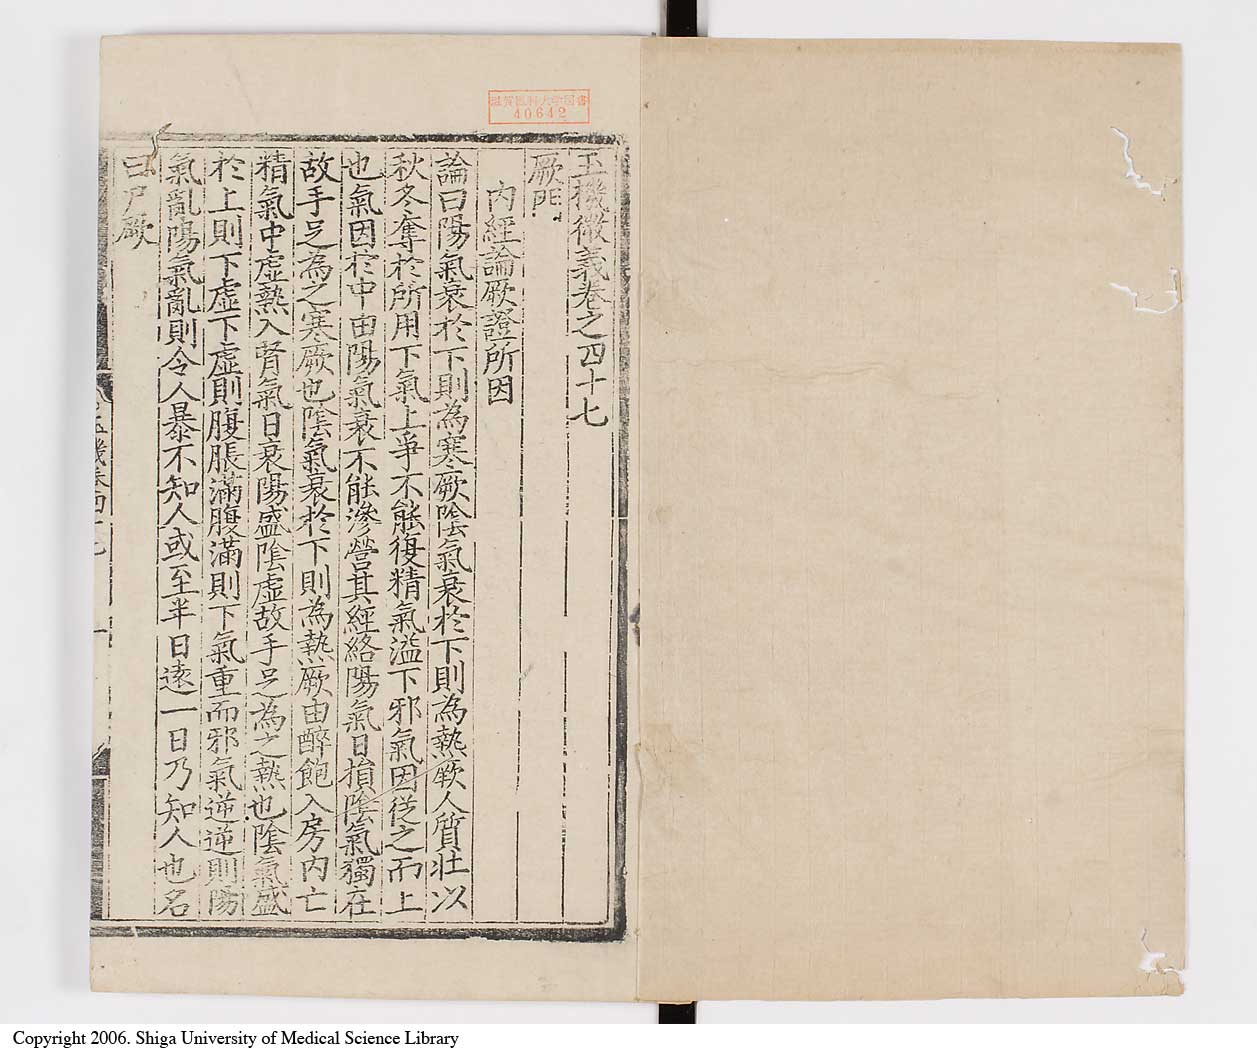 滋賀医科大学図書
40642
玉機微義卷之四十七
厥門
内經論厥證所因
論曰陽氣衰於下則為寒厥陰氣衰於下則為熱厥人質壯以
秋冬奪於所用下氣上爭不能復精氣溢下邪氣因從之而上
也氣因於中由陽氣衰不能滲營其經絡陽氣日損陰氣獨在
故手足為之寒厥也陰氣衰於下則為熱厥由醉飽入房内亡
精氣中虛熱入腎氣日衰陽盛陰虛故手足為之熱也陰氣盛
於上則下虛下虛則腹脹滿腹滿則下氣重而邪氣逆逆則陽
氣亂陽氣亂則令人暴不知人或至半日遠一日乃知人也名
曰尸厥
玉機卷四十七
一
Copyright 2006. Shiga University of Medical Science Library